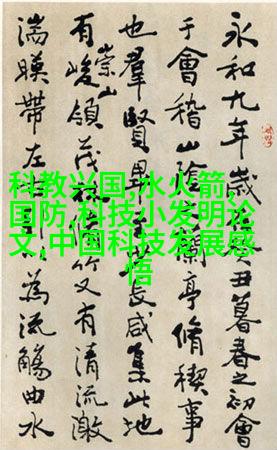 科教兴国,水火箭,
国防,科技小发明论
文,中国科技发展感
悟
永和九年歲丑暮春之初會
于會稽山陰蘭亭脩稧事
也羣賢畢長咸集此地
有崇山峻領茂竹又有清流激
湍暎帶左為流觴曲水